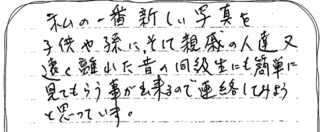 私の一番新しい写真を
子供や孫に、そして親戚の人達又
遠く離れた昔の同級生にも簡単に
見てもらう事が出来るので連絡してみよう
と思っています。